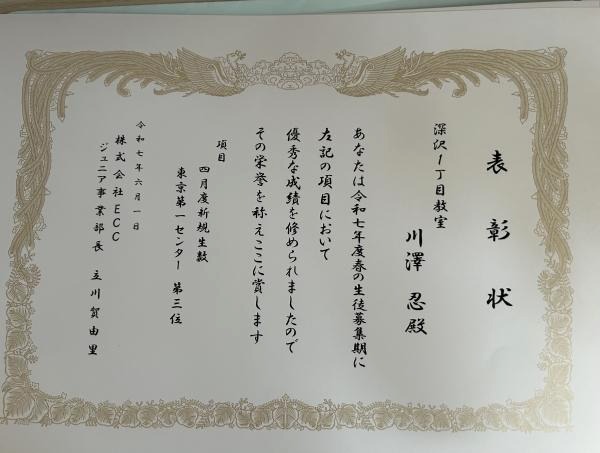 表彰状
深沢1丁目教室
川澤 忍殿
あなたは令和七年度春の生徒募集期に
左記の項目において
優秀な成績を修められましたので
その栄誉を称えここに賞します
項目
四月度新規生数
東京第一センター 第三位
令和七年六月一日
株式会社ECC
ジュニア事業部長 立川賀由里